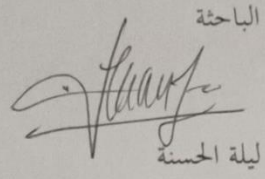 الباحثة
ليلة الحسنة